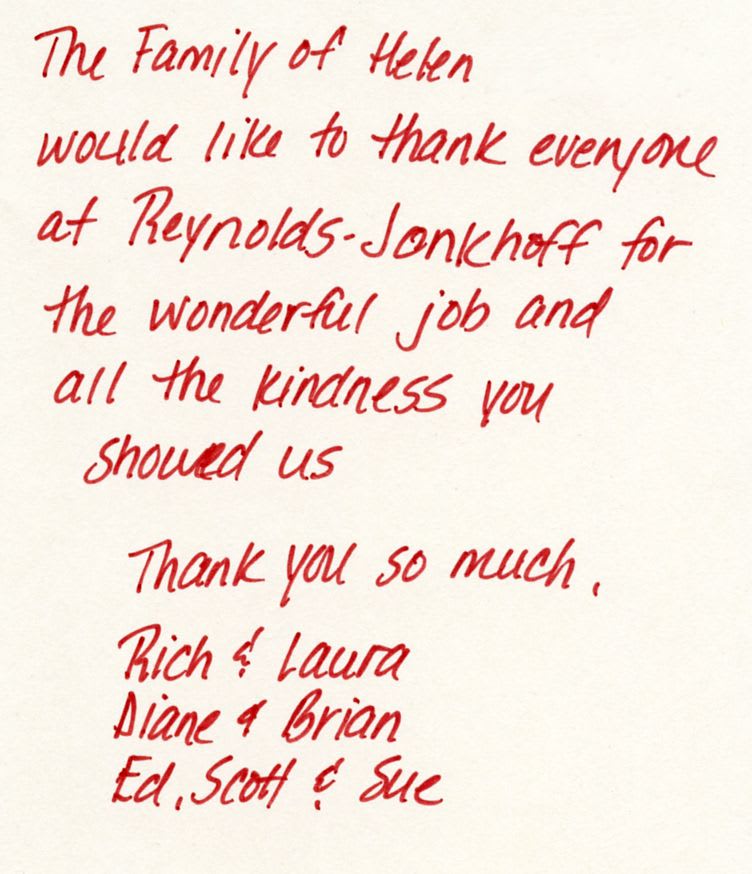 The Family of Helen
would like to thank everyone
at Reynolds-Jonkhoff for
the wonderful job and
all the kindness you
showed us
Thank you so much,
Rich & Laura
Diane & Brian
Ed, Scott & Sue